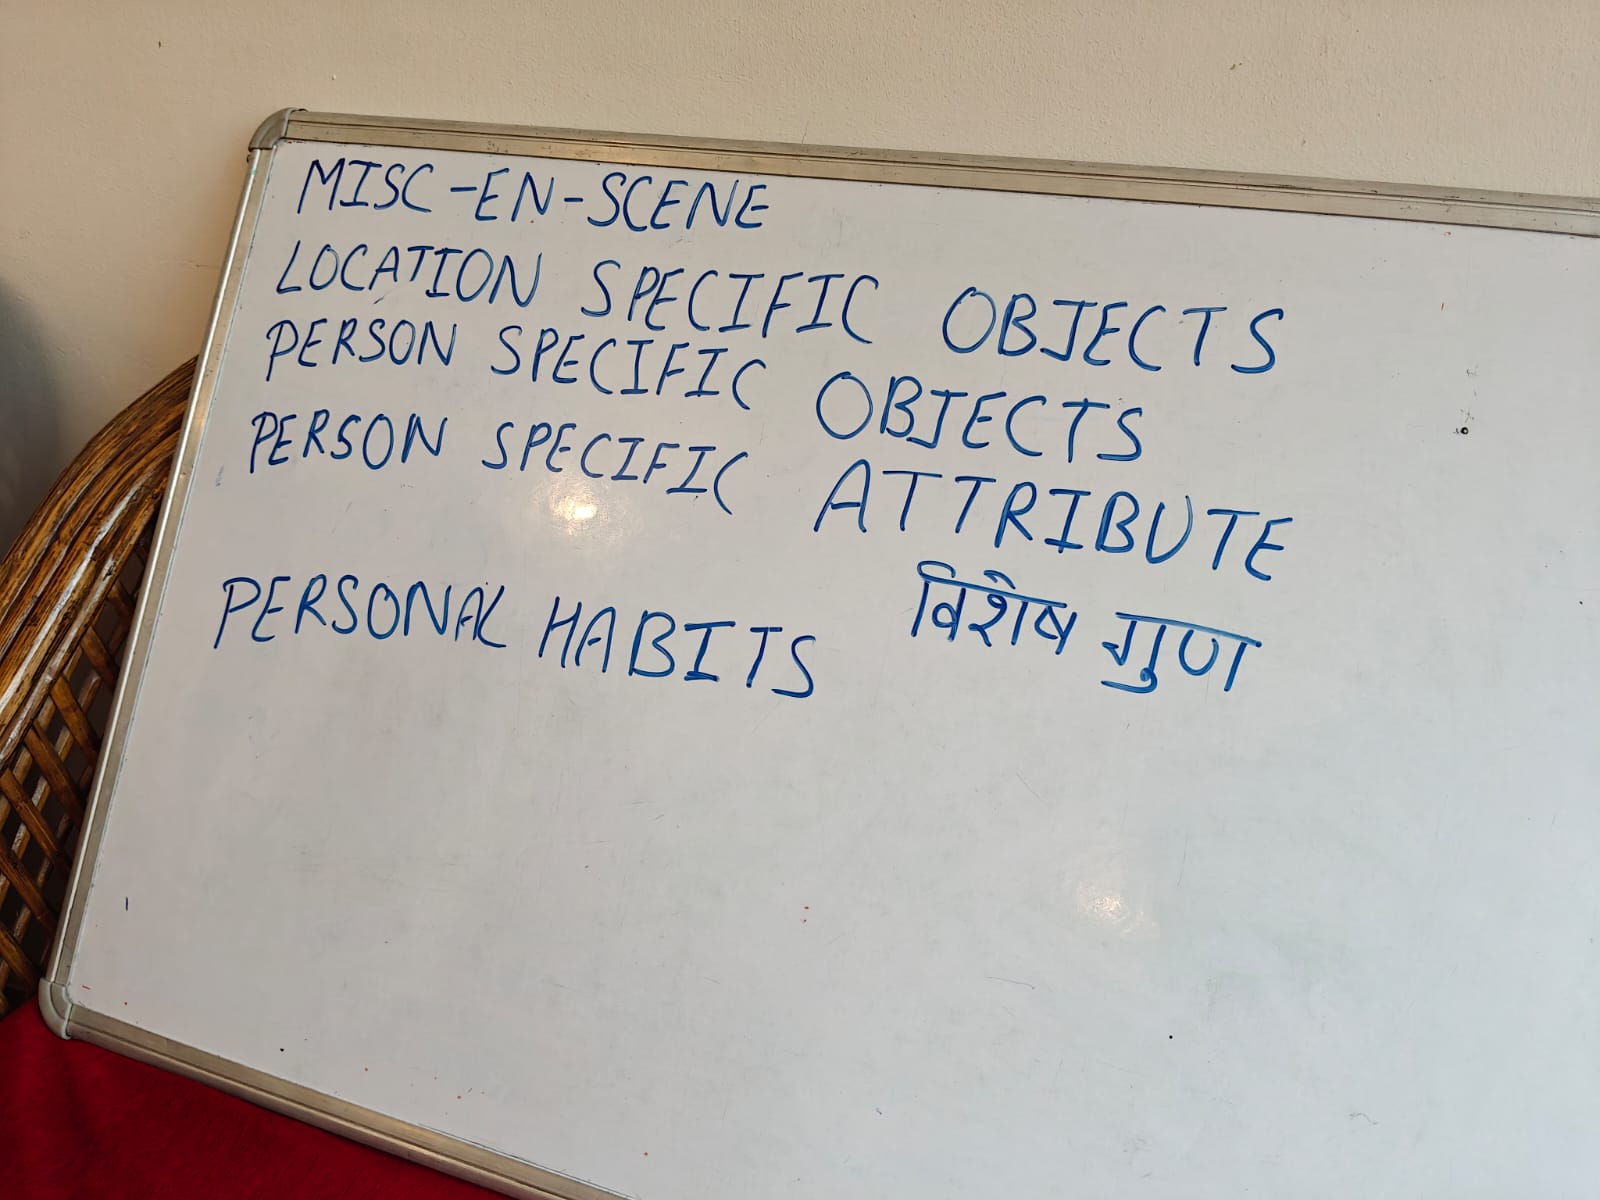 MISC-EN-SCENE
LOCATION SPECIFIC OBJECTS
PERSON SPECIFIC OBJECTS
PERSON SPECIFIC ATTRIBUTE
विशेष गुण
PERSONAL HABITS